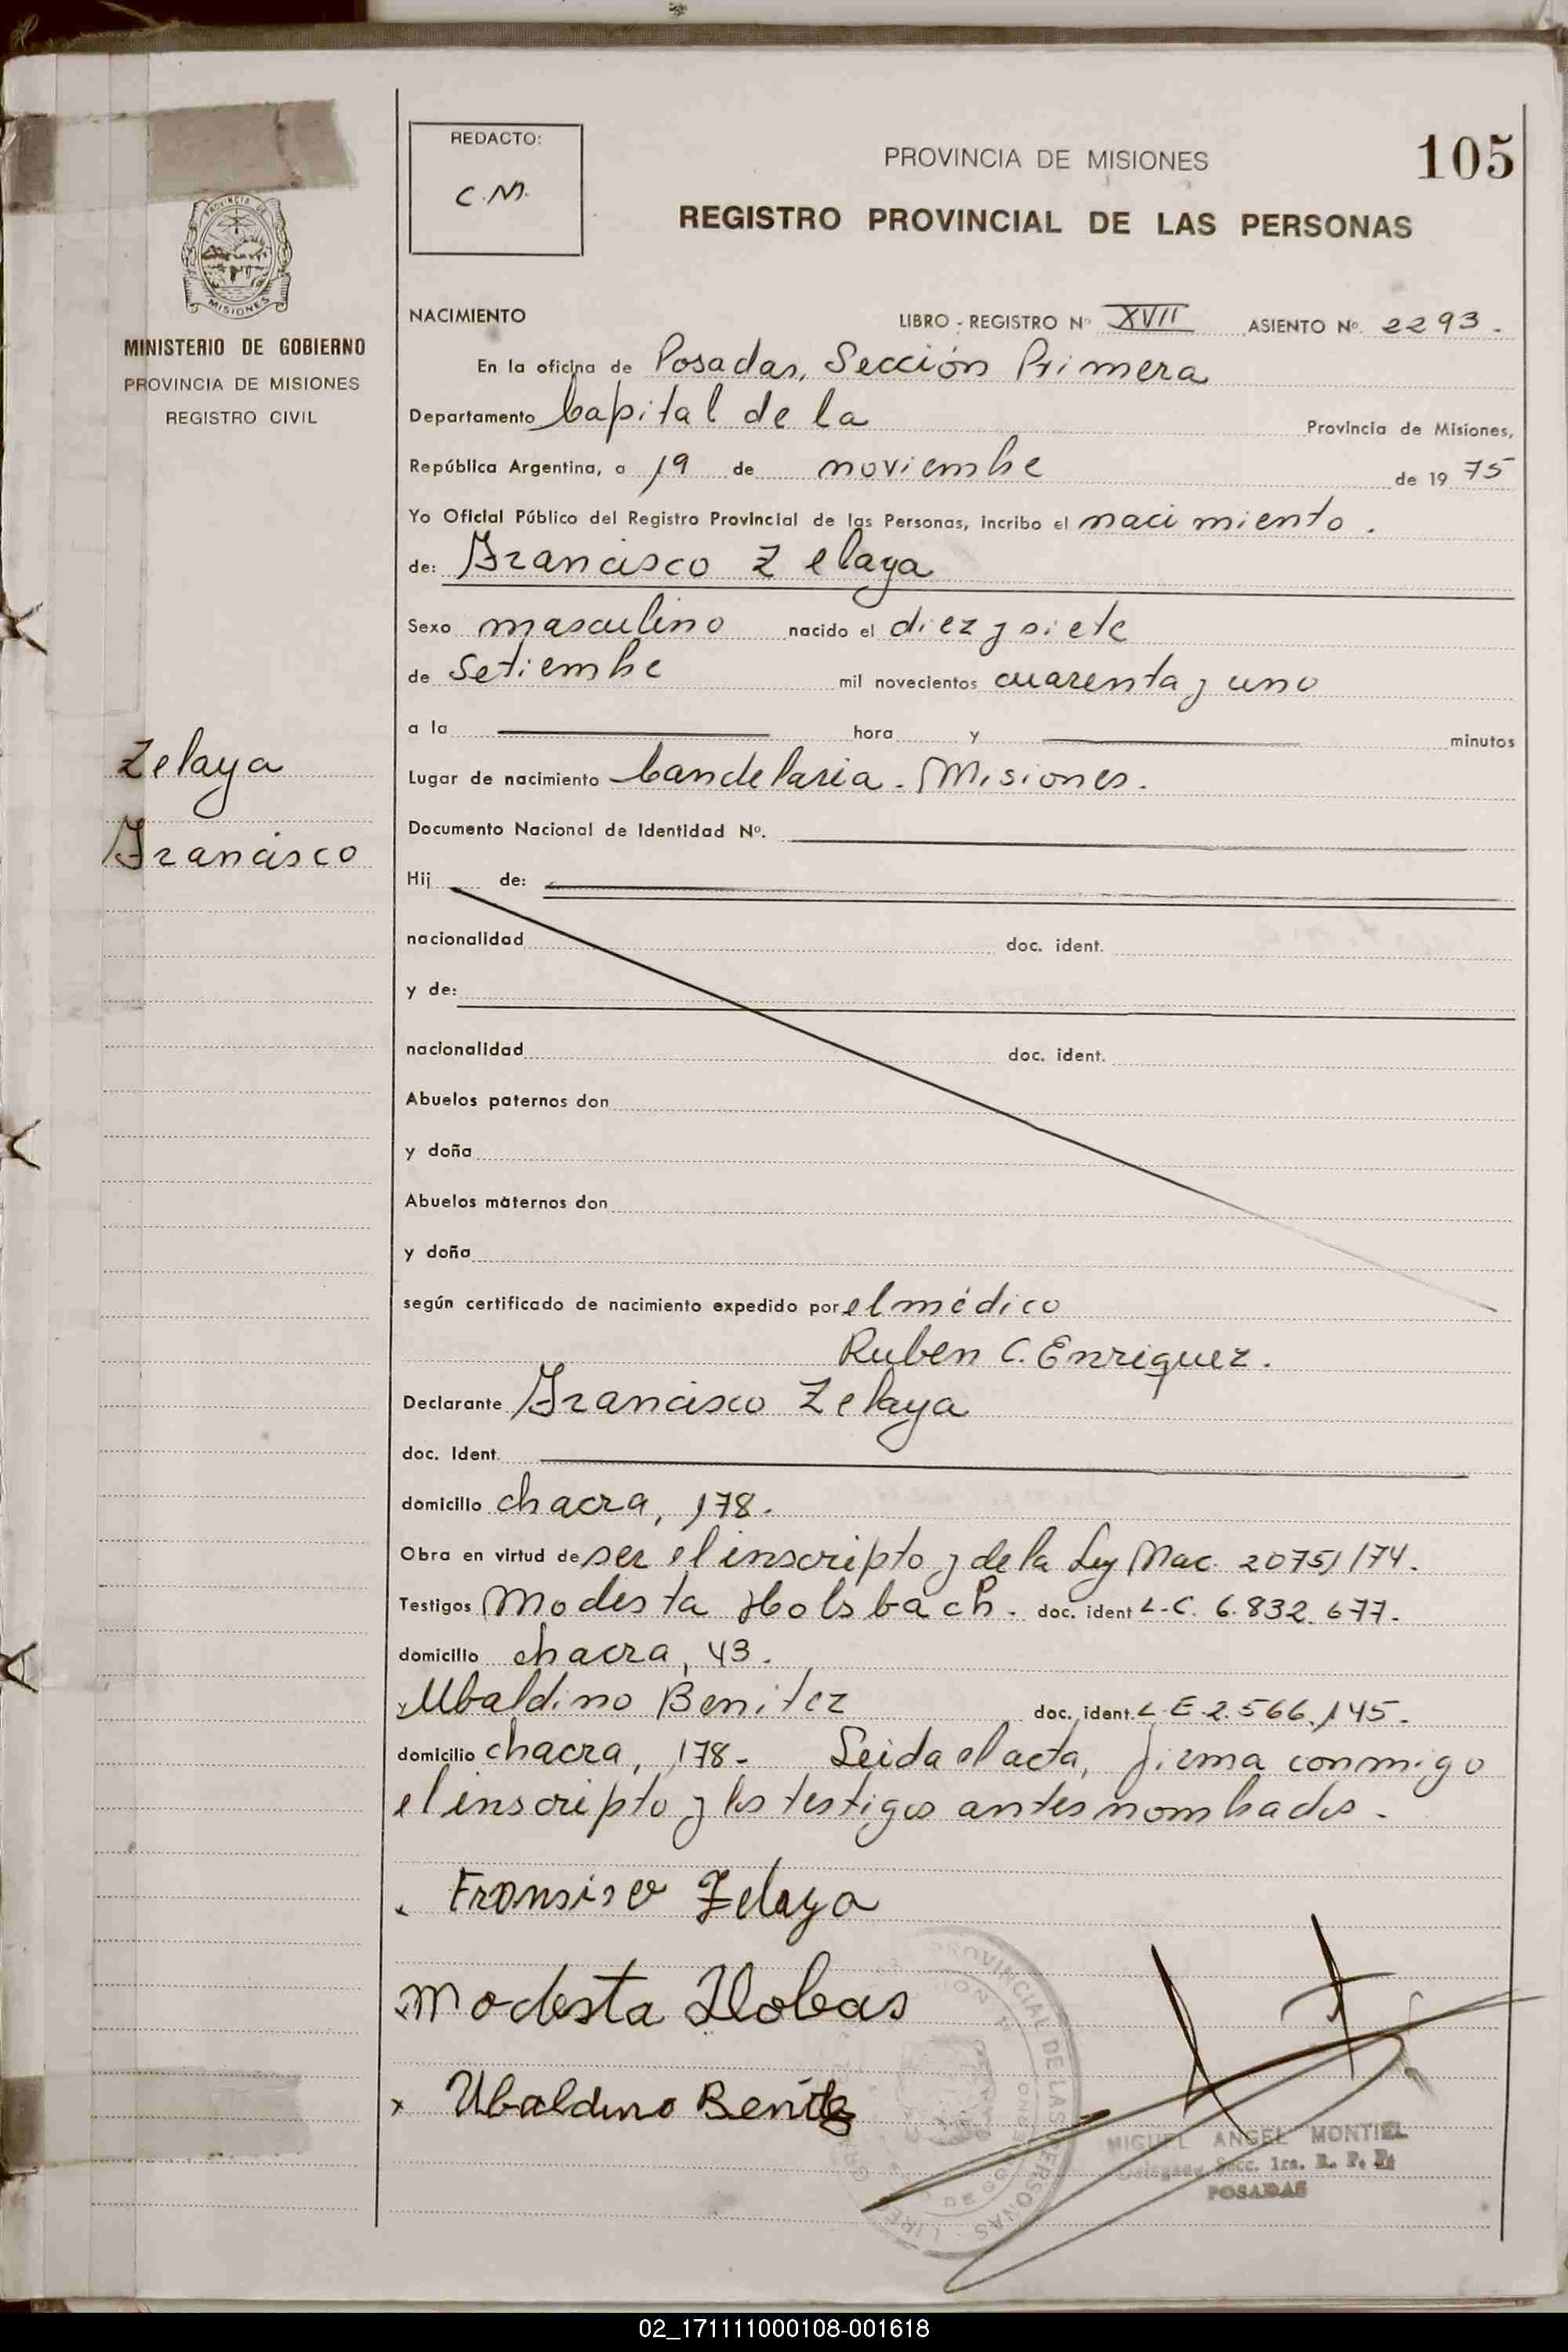 REDACTO:
C.M.
PROVINCIA DE MISIONES
105
REGISTRO PROVINCIAL DE LAS PERSONAS
MISIONES
MINISTERIO DE GOBIERNO
PROVINCIA DE MISIONES
REGISTRO CIVIL
NACIMIENTO
LIBRO - REGISTRO Nº XVII ASIENTO Nº. 2293.
En la oficina de Posadas, Sección Primera
Departamento Capital de la Provincia de Misiones,
República Argentina, a 19 de noviembre de 19 75
Yo Oficial Público del Registro Provincial de las Personas, incribo el nacimiento.
de: Francisco Zelaya
Sexo masculino nacido el diez y siete
de Setiembre mil novecientos cuarenta y uno
a la hora y minutos
Zelaya
Francisco
Lugar de nacimiento Candelaria. Misiones.
Documento Nacional de Identidad Nº.
Hij de:
nacionalidad doc. ident.
y de:
nacionalidad doc. ident.
Abuelos paternos don
y doña
Abuelos maternos don
y doña
según certificado de nacimiento expedido por el médico
Ruben C. Enriquez.
Declarante Francisco Zelaya
doc. Ident.
domicilio chacra, 178.
Obra en virtud de ser el inscripto y de la Ley Nac. 20751/74.
Testigos Modesta Holsbach. doc. ident L.C. 6.832.677.
domicilio chacra, 43.
y Ubaldino Benitez doc. ident. L.E. 2.566.145.
domicilio chacra, 178. Leida el acta, firma conmigo
el inscripto y los testigos antes nombrados.
Fransisco Zelaya
modesta
x Ubaldino Benitez
PROVINCIAL DE LAS PERSONAS
MIGUEL ANGEL MONTIEL
Delegado Secc. 1ra. R. P. P.
POSADAS
02_171111000108-001618